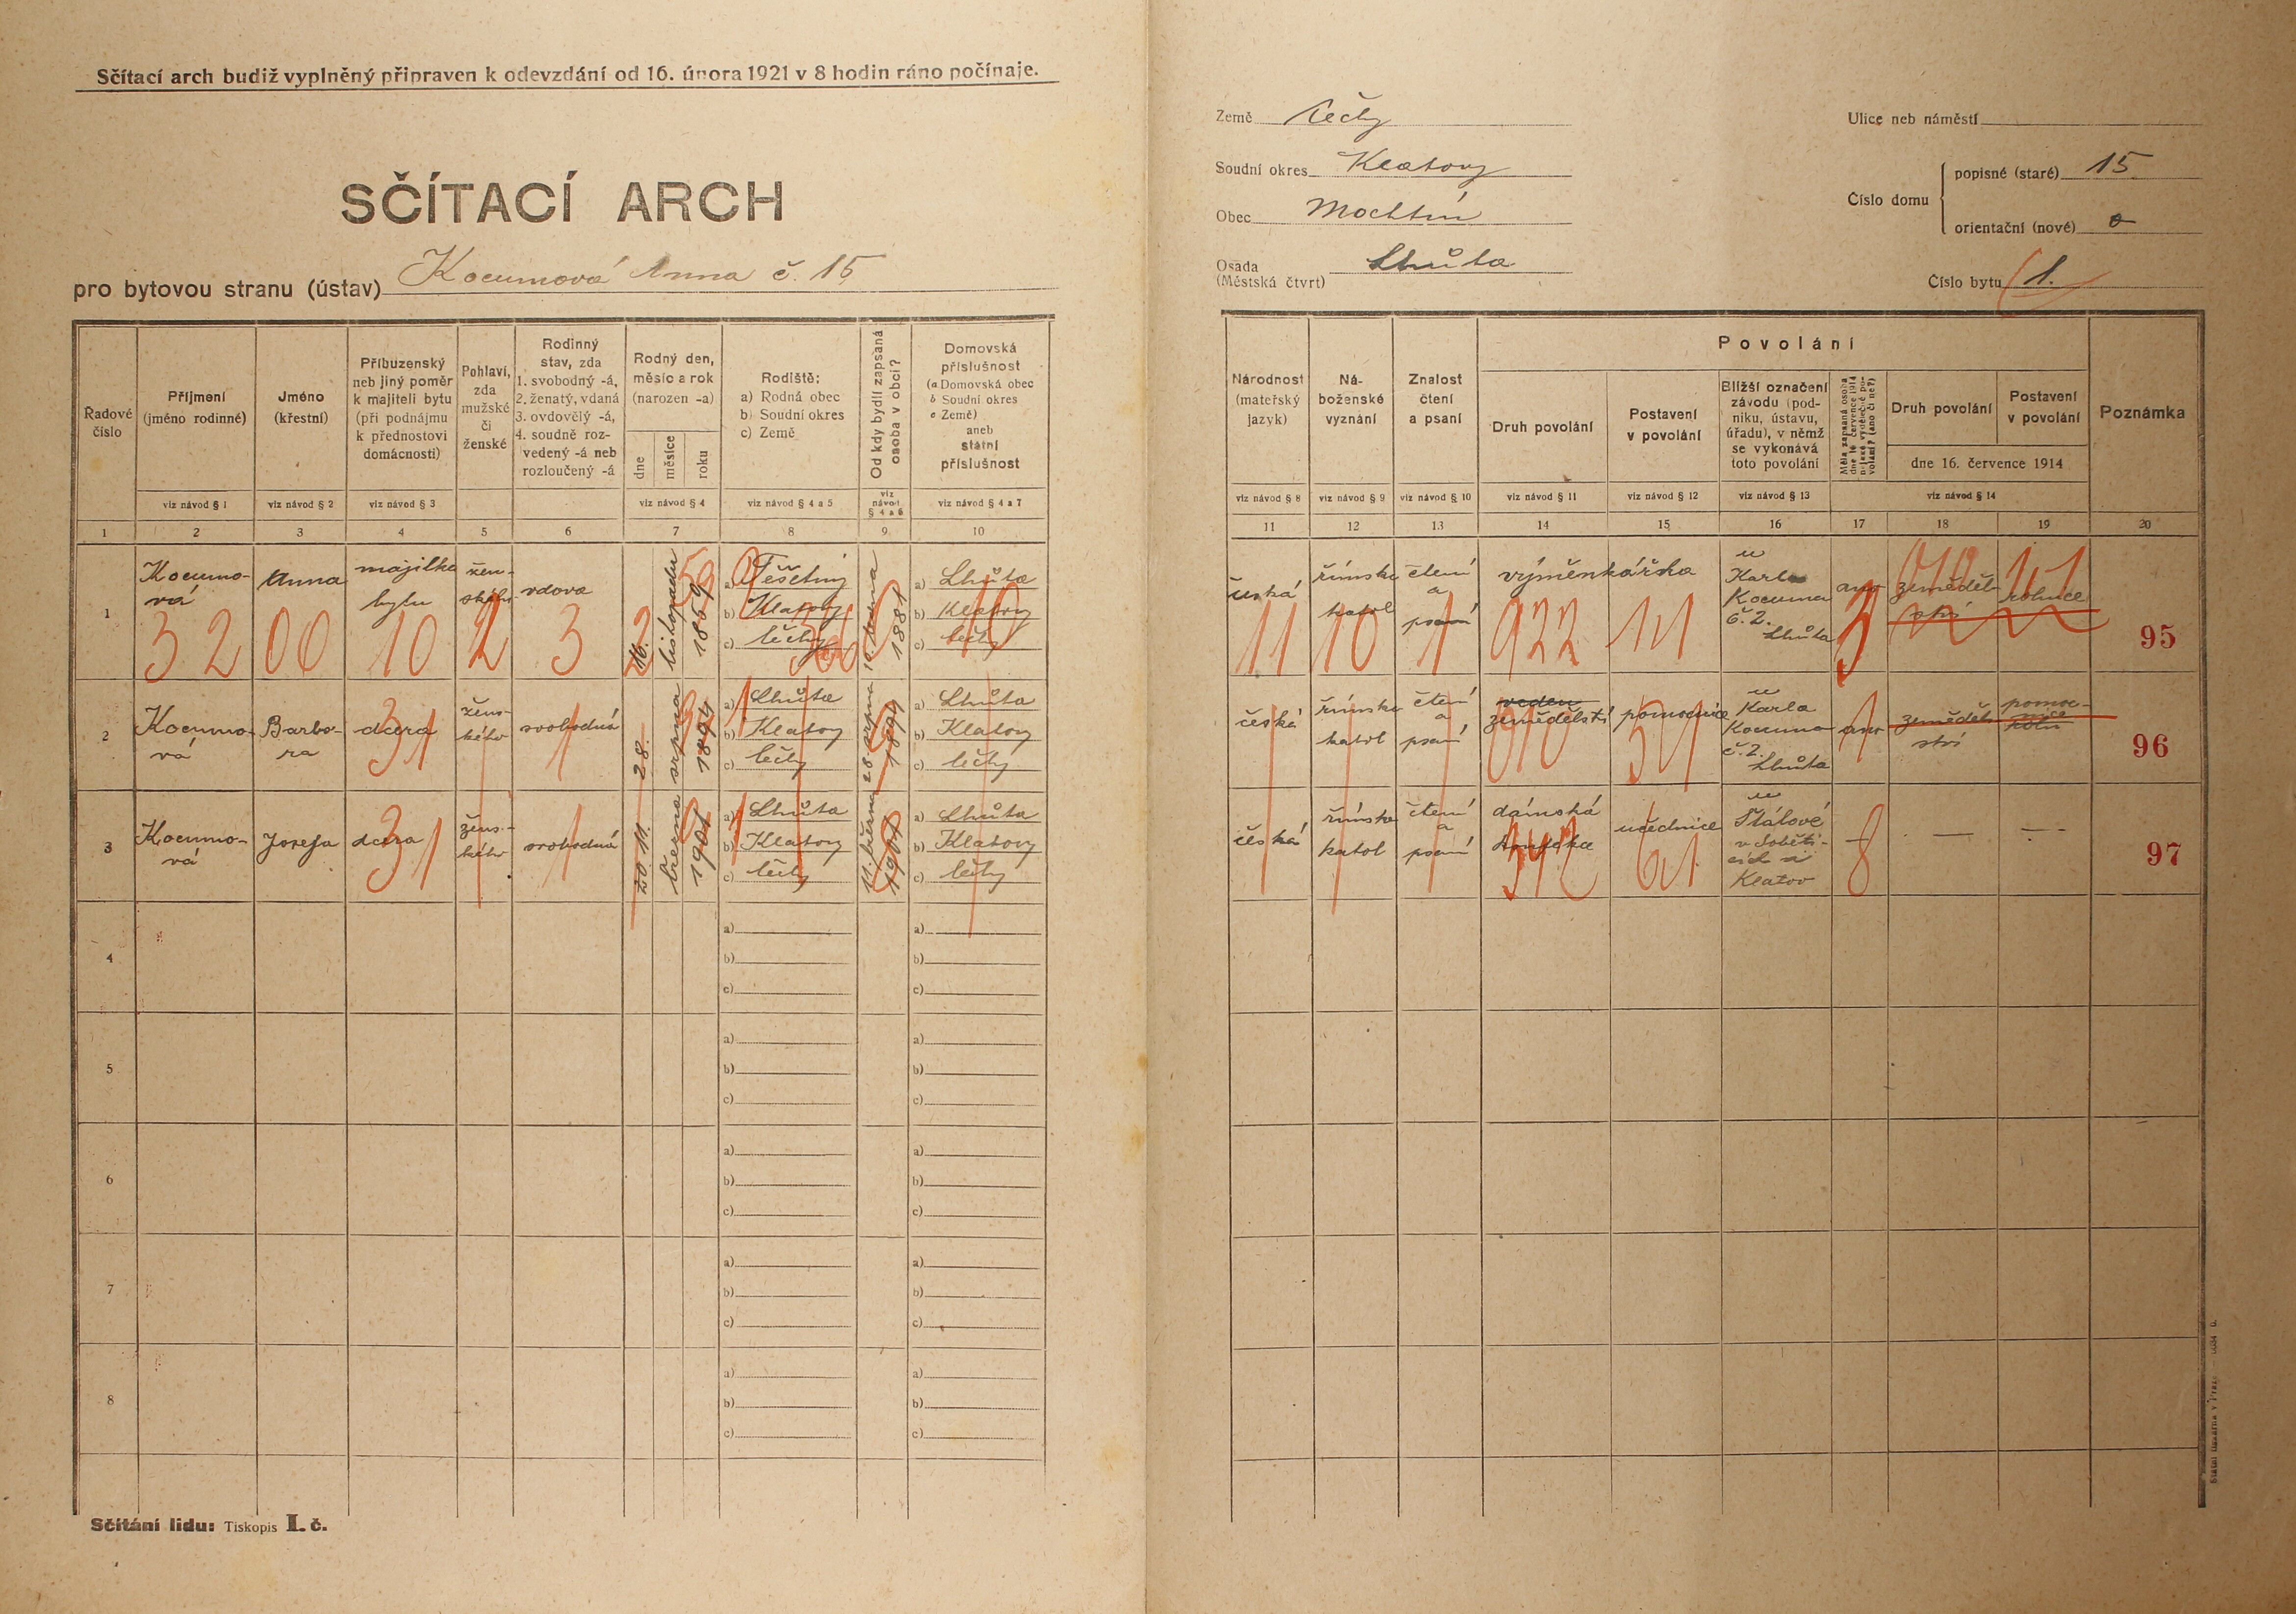 Sčítací arch budiž vyplněný připraven k odevzdání od 16. února 1921 v 8 hodin ráno počínaje.
SČÍTACÍ ARCH
pro bytovou stranu (ústav) Kocumová Anna č. 15
Řadové číslo
Příjmení (jméno rodinné)
Jméno (křestní)
Příbuzenský neb jiný poměr k majiteli bytu (při podnájmu k přednostovi domácnosti)
Pohlaví, zda mužské či ženské
Rodinný stav, zda 1. svobodný -á, 2. ženatý, vdaná 3. ovdovělý -á, 4. soudně rozvedený -á neb rozloučený -á
Rodný den, měsíc a rok (narozen -a)
dne
měsíce
roku
Rodiště: a) Rodná obec b) Soudní okres c) Země
Od kdy bydlí zapsaná osoba v obci?
Domovská příslušnost (a Domovská obec b Soudní okres c Země) aneb státní příslušnost
viz návod § 1
viz návod § 2
viz návod § 3
viz návod § 4
viz návod § 4 a 5
viz návod § 4 a 6
viz návod § 4 a 7
1 2 3 4 5 6 7 8 9 10
1 Kocumová Anna majitelka bytu ženského vdova 16. listopadu 1859
a) Těšetiny
b) Klatovy
c) Čechy
1881
a) Lhůta
b) Klatovy
c) Čechy
32 00 10 2 3
2 Kocumová Barbora dcera ženského svobodná 28. srpna 1894
a) Lhůta
b) Klatovy
c) Čechy
28 srpna 1894
a) Lhůta
b) Klatovy
c) Čechy
31 1
3 Kocumová Josefa dcera ženského svobodná 11. března 1901
a) Lhůta
b) Klatovy
c) Čechy
11. března 1901
a) Lhůta
b) Klatovy
c) Čechy
31 1
4 a) b) c) a) b) c)
5 a) b) c) a) b) c)
6 a) b) c) a) b) c)
7 a) b) c) a) b) c)
8 a) b) c) a) b) c)
Sčítání lidu: Tiskopis I. č.
Země Čechy
Soudní okres Klatovy
Obec Mochtín
Osada (Městská čtvrt) Lhůta
Ulice neb náměstí
Číslo domu
popisné (staré) 15
orientační (nové) 0
Číslo bytu 1.
Národnost (mateřský jazyk)
Náboženské vyznání
Znalost čtení a psaní
Povolání
Druh povolání
Postavení v povolání
Bližší označení závodu (podniku, ústavu, úřadu), v němž se vykonává toto povolání
Měla zapsaná osoba dne 16. července 1914 nějaké výdělečné povolání? (ano či ne?)
Druh povolání
Postavení v povolání
dne 16. července 1914
Poznámka
viz návod § 8
viz návod § 9
viz návod § 10
viz návod § 11
viz návod § 12
viz návod § 13
viz návod § 14
11 12 13 14 15 16 17 18 19 20
česká římsko katol čtení a psaní výměnkářka u Karla Kocuma č. 2. Lhůta ano zemědělství rolnice 95
11 10 1 922 3
česká římsko katol čtení a psaní zemědělství pomocnice u Karla Kocuma č. 2. Lhůta ano zemědělství 96
česká římsko katol čtení a psaní dámská učednice u v Soběticích u Klatov — — 97
8